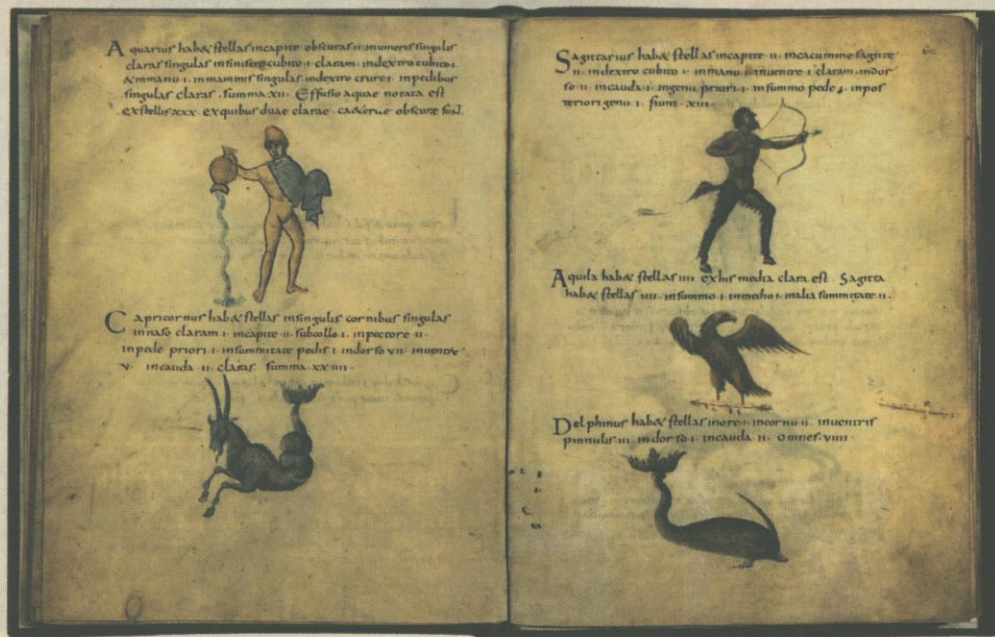 Aquarius habet stellas incapite obscuras ii inumeris singulis
claras singulas insinistro cubito i claram indextro cubito i
& inmanu i inmammis singulas indextro crure i inpedibus
singulas claras . summa xii . Effusio aquae notata est
exstellis xxx exquibus duae clarae . caeterae obscurae
Capricornus hab& stellas insingulis cornibus singulas
innaso claram i incapite ii subcollo i inpectore ii
inpede priori i insummitate pedis i indorso vii inuentre
v incauda ii claras summa xxiiii
Sagittarius hab& stellas incapite ii incacumine sagitte
ii indextro cubito i inmanu i inuentre i claram indor
so ii incauda i ingenu priori i insummo pede i inpos
teriori genu i fiunt xiii
60
Aquila hab& stellas iiii exhis media clara est . Sagitta
hab& stellas iiii insummo i inmedio i inalia summitate ii
Delphinus hab& stellas inore i incornu ii inuentris
pinnulis iii indorso i incauda ii omnes viiii